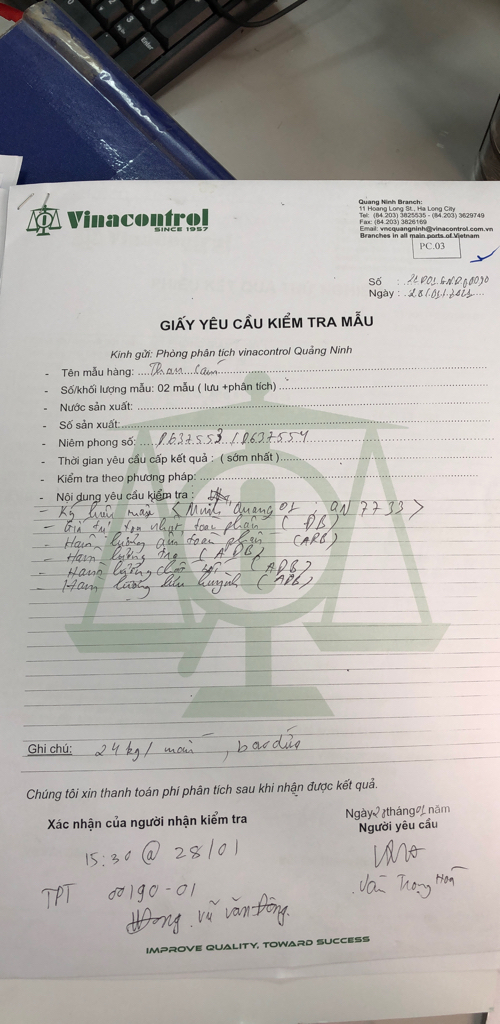 Vinacontrol
SINCE 1957
Quang Ninh Branch:
11 Hoang Long St., Ha Long City
Tel: (84.203) 3825535 - (84.203) 3629749
Fax: (84.203) 3826169
Email: vncquangninh@vinacontrol.com.vn
Branches in all main ports of Vietnam
PC.03
Số :
Ngày : 28/01/2021
GIẤY YÊU CẦU KIỂM TRA MẪU
Kính gửi: Phòng phân tích vinacontrol Quảng Ninh
- Tên mẫu hàng: Than cám
- Số/khối lượng mẫu: 02 mẫu ( lưu +phân tích)
- Nước sản xuất:
- Số sản xuất:
- Niêm phong số: 0637553 / 0637554
- Thời gian yêu cầu cấp kết quả : ( sớm nhất )
- Kiểm tra theo phương pháp:
- Nội dung yêu cầu kiểm tra :
- Ký hiệu mẫu < Minh Quang 01, QN 7733 >
- Giá trị tỏa nhiệt toàn phần ( DB )
- Hàm lượng ẩm toàn phần (ARB)
- Hàm lượng tro (ADB)
- Hàm lượng chất bốc (ADB)
- Hàm lượng lưu huỳnh (ADB)
Ghi chú: 24 kg/ mẫu , bao dứa
Chúng tôi xin thanh toán phí phân tích sau khi nhận được kết quả.
Ngày 28 tháng 01 năm
Xác nhận của người nhận kiểm tra
Người yêu cầu
15:30 @ 28/01
TPT 00190-01
Văn Trọng Hoà
Vũ Văn Đông
IMPROVE QUALITY, TOWARD SUCCESS